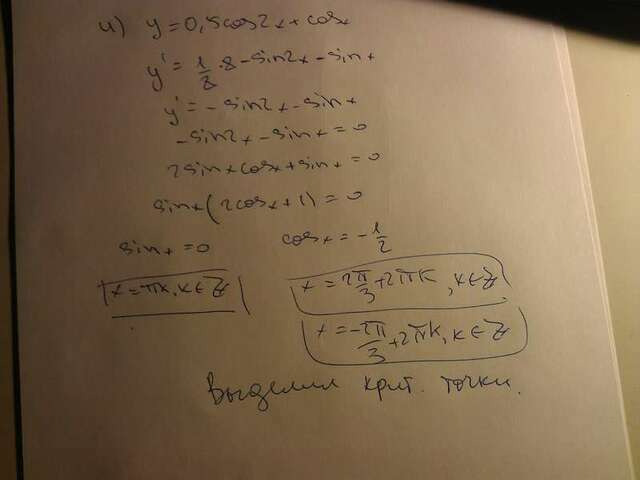 и) y = 0,5cos2x + cosx
y' = 1/2 · 2 - sin2x - sinx
y' = - sin2x - sinx
- sin2x - sinx = 0
2sinxcosx + sinx = 0
sinx(2cosx + 1) = 0
sinx = 0 cosx = - 1/2
x = πk, k ∈ Z x = 2π/3 + 2πk, k ∈ Z
x = - 2π/3 + 2πk, k ∈ Z
Выделил крит. точки.